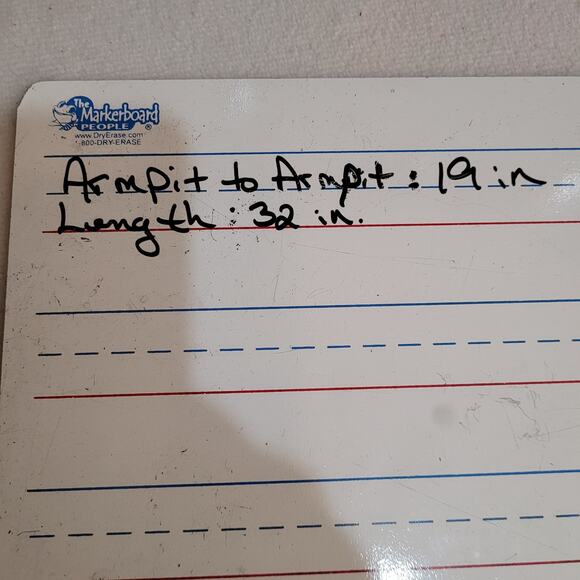 The
Markerboard
PEOPLE ®
www.DryErase.com
800-DRY-ERASE
Armpit to Armpit: 19 in
Length: 32 in.